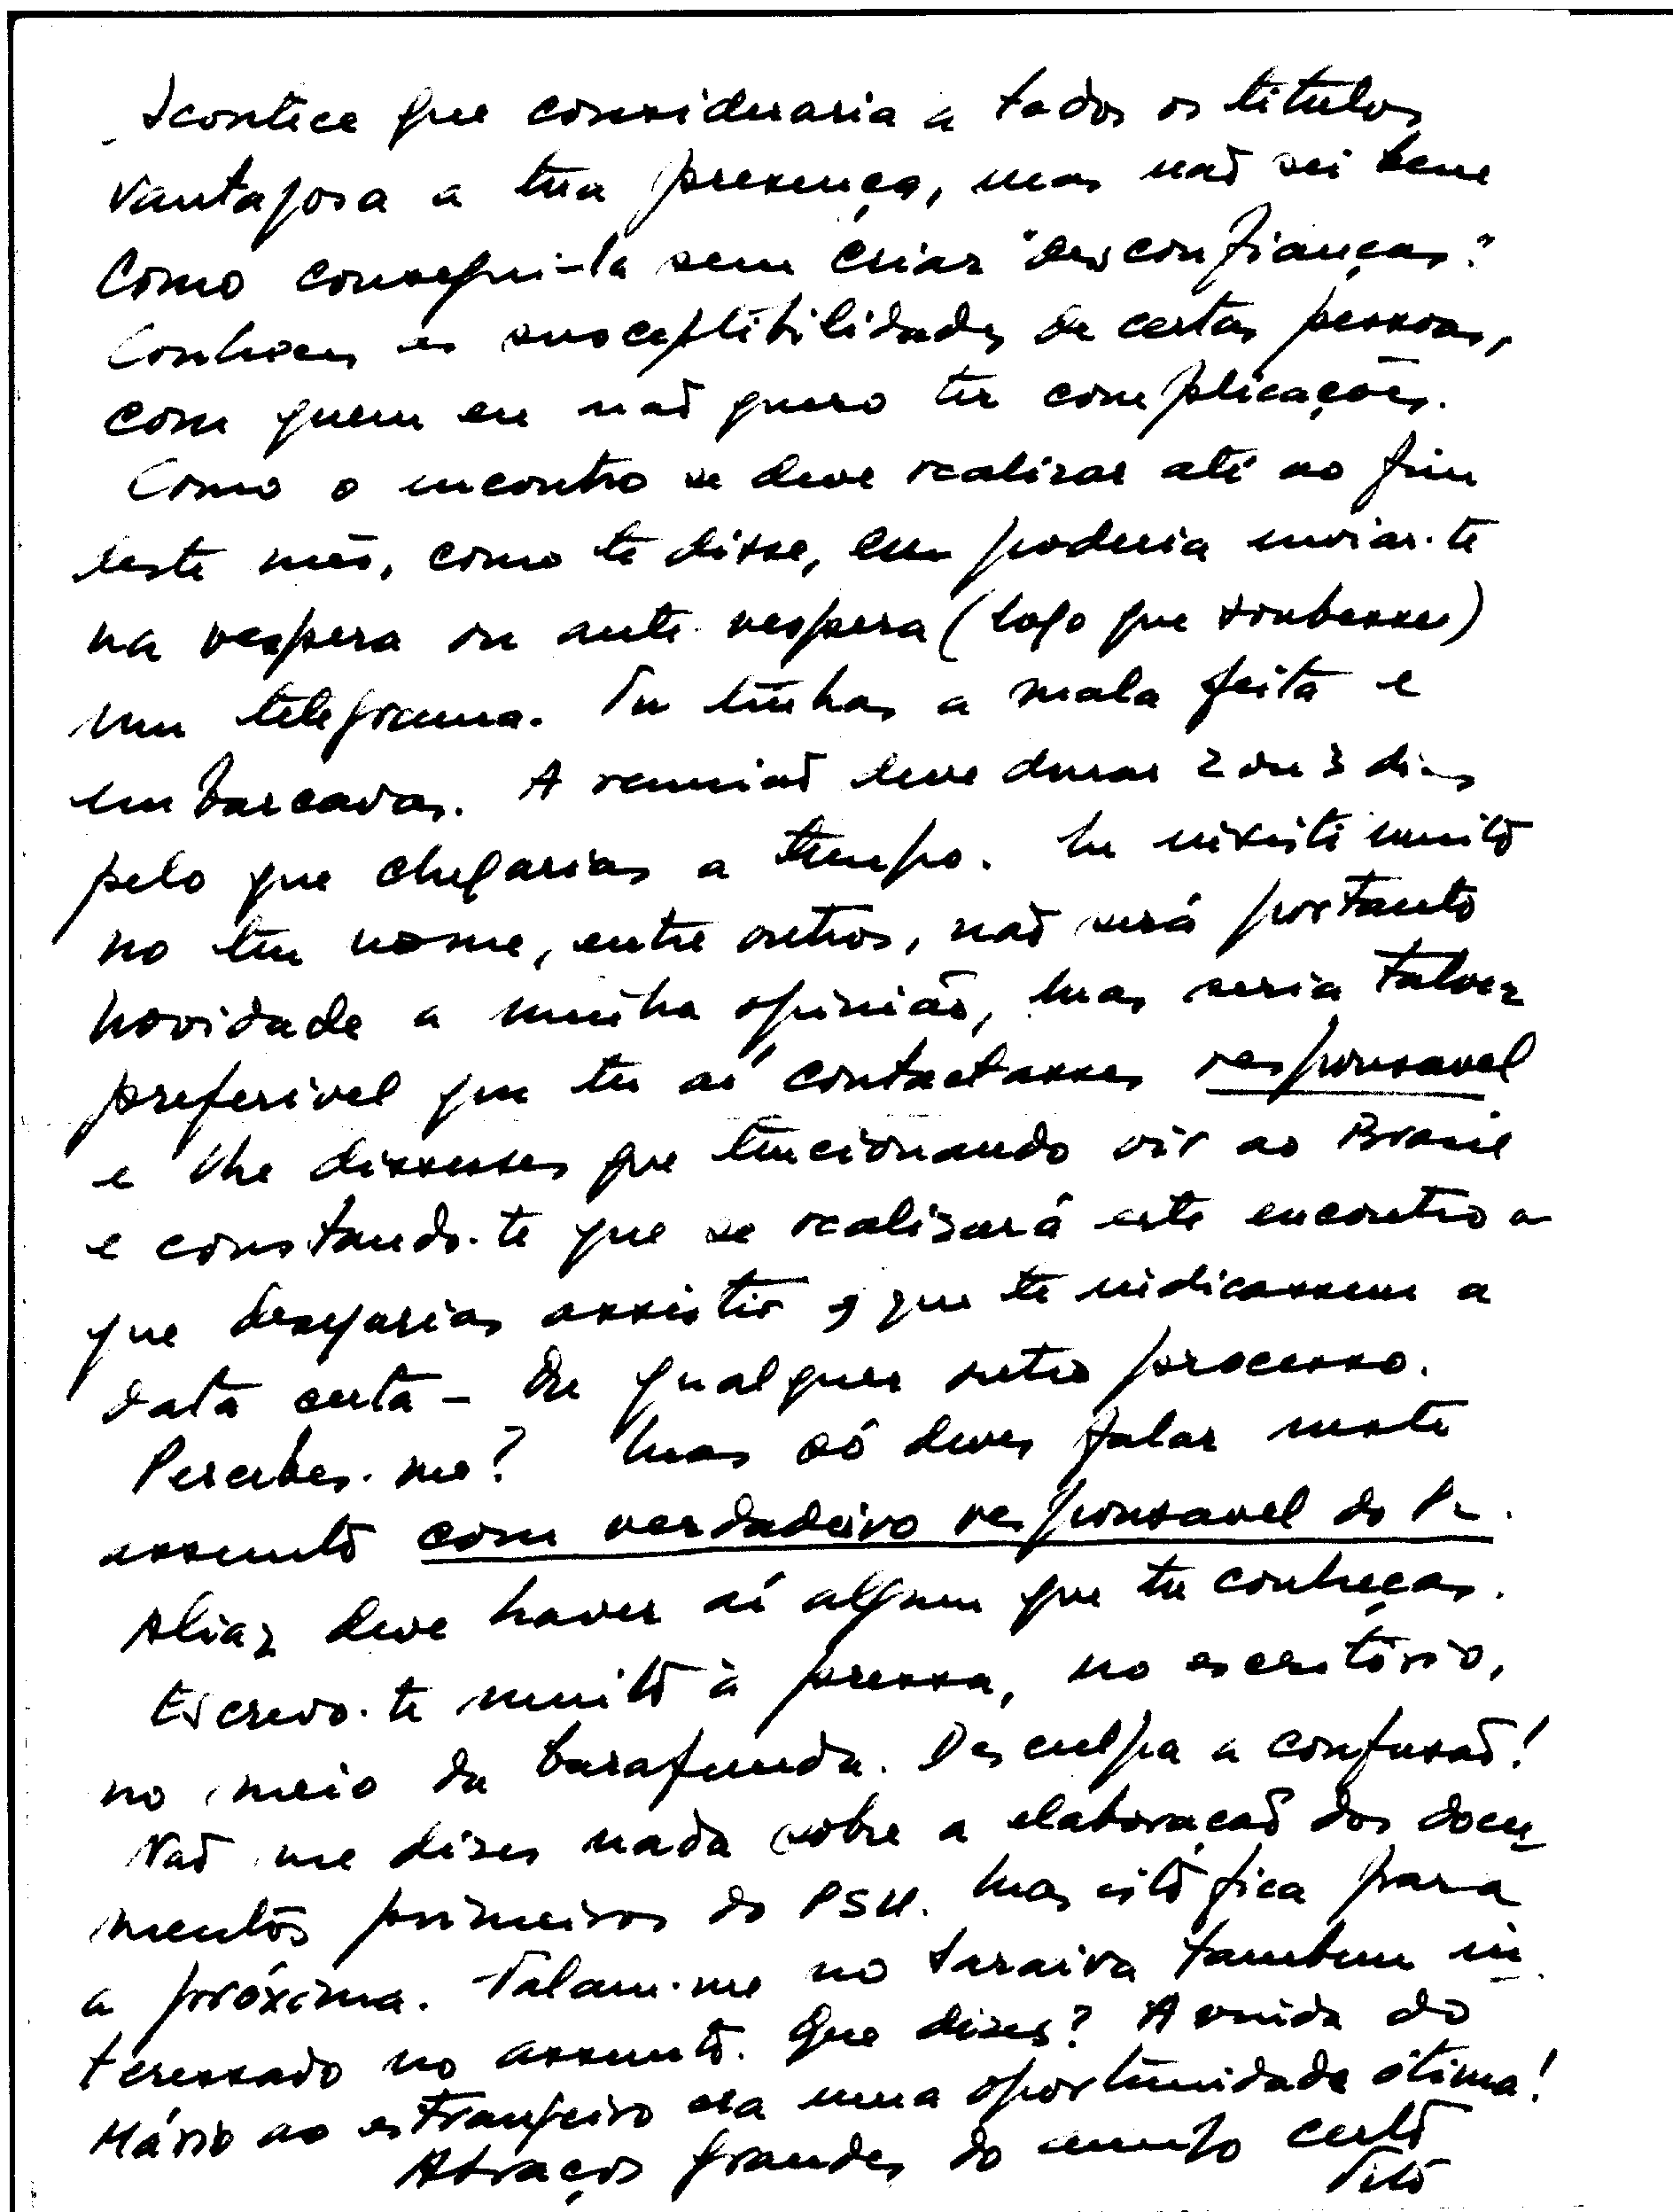 Acontece que consideraria a todos os titulos
vantajosa a tua presença, mas não sei bem
como consegui-la sem criar "desconfianças".
Conheces as susceptibilidades de certas pessoas,
com quem eu não quero ter complicações.
Como o encontro se deve realizar até ao fim
deste mês, como te disse, eu poderia enviar-te
na vespera ou ante-vespera (logo que soubesse)
um telegrama. Tu tinhas a mala feita e
embarcavas. A reunião deve durar 2 ou 3 dias
pelo que chegarias a tempo. Eu insisti muito
no teu nome, entre outros, não será portanto
novidade a minha opinião, mas seria talvez
preferivel que tu aí contactasses responsavel
e lhe dissesses que tencionando vir ao Brasil
e constando-te que se realizará este encontro a
que desejarias assistir, que te indicassem a
data certa – Ou qualquer outro processo.
Percebes-me? Mas só deves falar neste
assunto com verdadeiro responsavel do
Aliaz deve haver aí algum que tu conheças.
Escrevo-te muito à pressa, no escritório,
no meio da barafunda. Desculpa a confusão!
Não me dizes nada sobre a elaboração dos docu-
mentos primeiros do PSU. Mas isto fica para
a próxima. Falam-me no Saraiva tambem in-
teressado no assunto. Que dizes? A vinda do
Mário ao estrangeiro era uma oportunidade ótima!
Abraços grandes do amigo certo